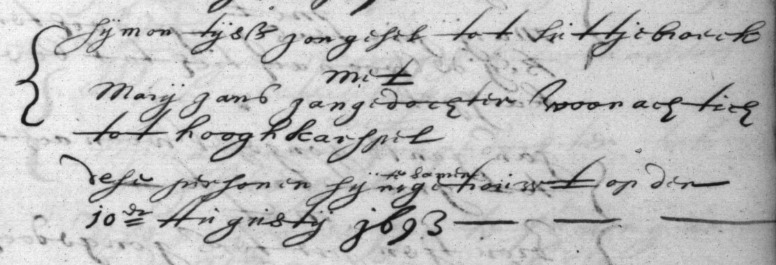 Sijmon tijsz jongesel tot Luttjebroeck
met
Marij Jans jangedochter woonachtich
tot hooghkarspel
dese personen sijn te samen getrouwt op den
10de Augustij 1693